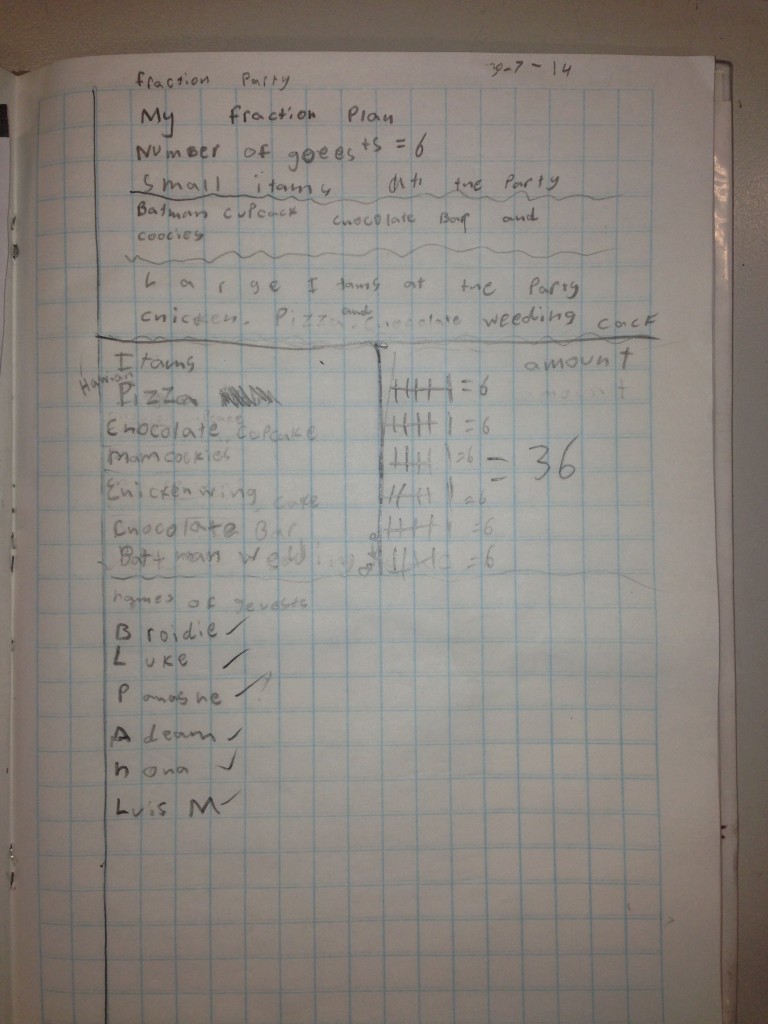 fraction Party
9-7-14
My fraction Plan
Number of goeests = 6
Small itams At the Party
Batman cupcack chocolate Bar and
coocies
Large Itams at the Party
chicken. Pizza and chocolate weeding cack
Itams amount
Hawian Pizza = 6
Chocolate cupcake = 6
mamcookies = 6 = 36
Chickenwing = 6
Chocolate Bar = 6
Batman wedding cake = 6
names of geuests
Broidie ✓
Luke ✓
Panashe ✓
Adeam ✓
nona ✓
Luis M ✓